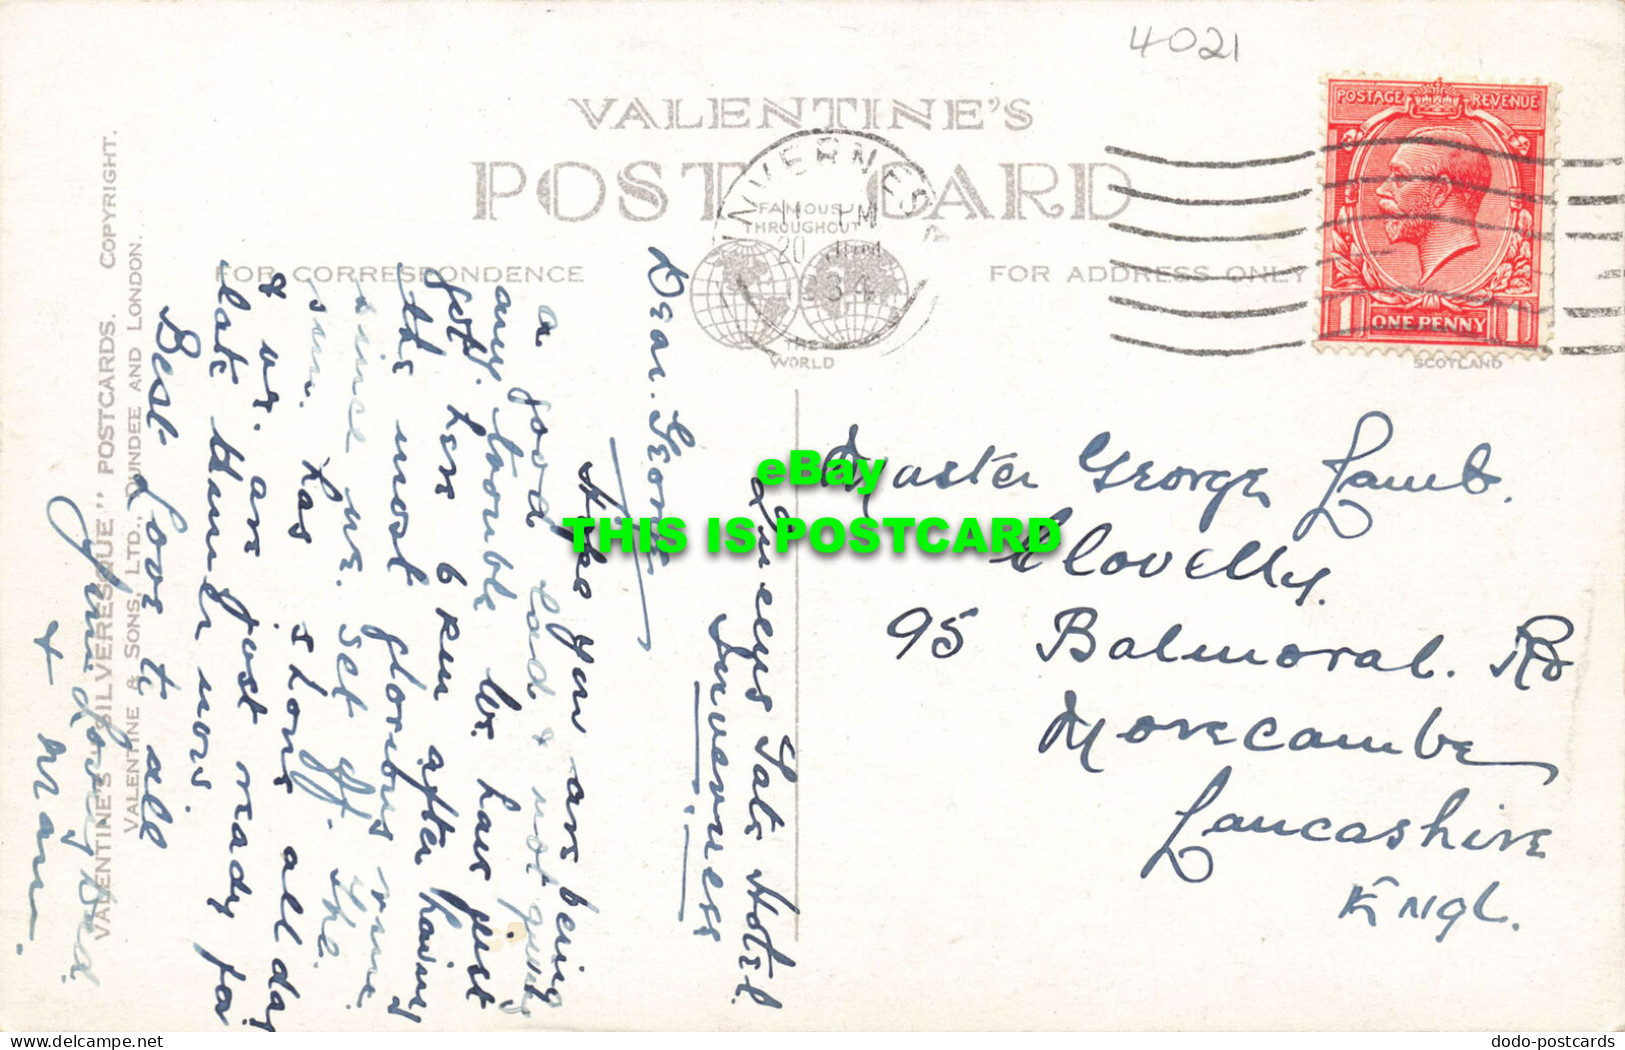 4021
VALENTINE'S
POST CARD
FAMOUS
THROUGHOUT
THE
WORLD
FOR CORRESPONDENCE
FOR ADDRESS ONLY
INVERNESS
11 PM
20 JUN
34
POSTAGE REVENUE
1 ONE PENNY 1
SCOTLAND
VALENTINE'S "SILVERESQUE" POSTCARDS. COPYRIGHT.
VALENTINE & SONS, LTD., DUNDEE AND LONDON.
Master George Lamb.
Clovelly.
95 Balmoral. Rd
Morecambe
Lancashire
Engl.
Hotel
Inverness
Dear. George
Hope you are being
a good lad & not giving
any trouble. We have just
got here 6 pm after having
the most glorious time
since we. set off. The.
sun. has shone all day
& we. are just ready for
late dinner now.
Best Love to all
Your loving Dad
& Mam.
eBay
THIS IS POSTCARD
dodo-postcards